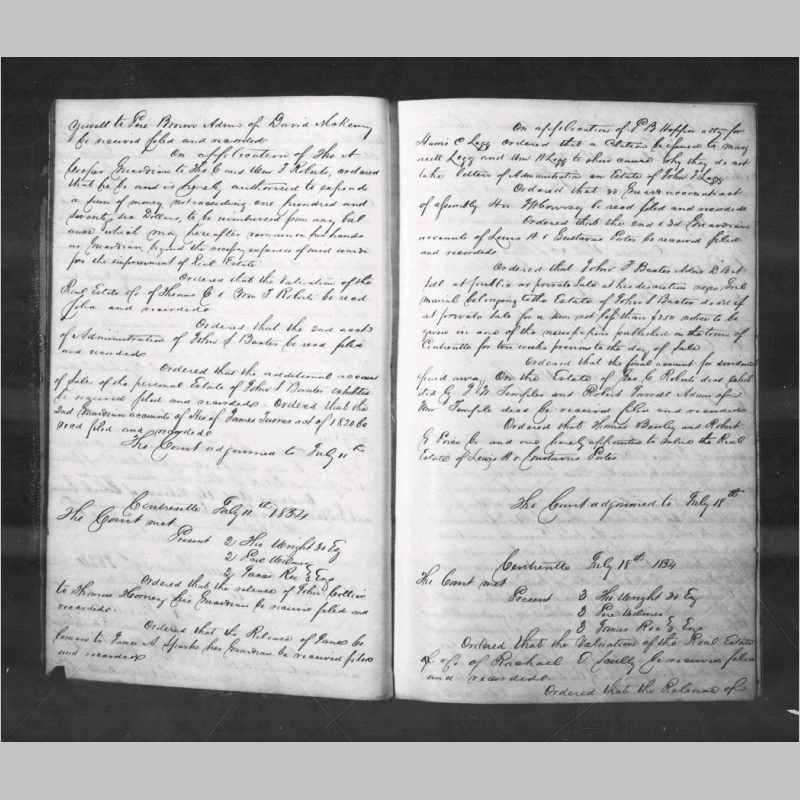 to Pere Brown Adms of David McKenny
be received filed and recorded
On application of Tho A
Guardian to Tho C and Wm F Roberts, ordered
that he be and is hereby authorised to expend
a sum of money not exceeding one hundred and
Seventy six Dollars, to be reimbursed from any bal
ance which may hereafter remain in his hands
as Guardian, beyond the expences of said wards
for the improvement of Real Estate
Ordered that the Valuation of the
Real Estate &c of Thomas C & Wm F Roberts be read
filed and recorded
Ordered that the 2nd acct
of Administration of John S Baxter be read filed
and recorded
Ordered that the additional account
of sales of the personal Estate of John S Baxter
be received filed and recorded. Ordered that the
2nd Guardian accounts of of James act of 1820 be
read filed and recorded
The Court adjourned to July 11th
Centreville July 11th 1834
The Court met
Present 2 Tho Wright 3d Esq
2 Pere Wilmer
2 James Roe Esqs
Ordered that the release of John Collins
to Thomas his Guardian be received filed and
recorded.
Ordered that the Release of
to James A Sparks his Guardian be received filed
and recorded
On application of P B Hopper atty for
C Legg ordered that a Citation be issued to
Legg and Wm A Legg to shew cause why they do not
take letters of Administration on Estate of John Legg
Ordered that account act
of assembly be read filed and recorded
Ordered that the 2nd & 3d Guardian
accounts of Lewis A & Gustavus be received filed
and recorded
Ordered that John F Baxter Adms D B N
sell at public or private sale at his discretion negro Girl
belonging to the Estate of John S Baxter decd if
at private sale for a sum not less than $250 notice to be
given in one of the newspapers published in the town of
Centreville for two weeks previous to the day of sale
Ordered that the final account for
paid away On the Estate of Tho C Roberts decd
by T W Temple and Robert Adms of
Wm Temple decd be received filed and recorded
Ordered that Thomas and Robert
G Price be and are hereby appointed to value the Real
Estate of Lewis A &
The Court adjourned to July 18th
Centreville July 18th 1834
The Court met
Present 3 Tho Wright 3d Esq
3 Pere Wilmer
3 James Roe Esqs
Ordered that the Valuation of the Real Estate
&c of Rachael be received filed
and recorded.
Ordered that the Release of